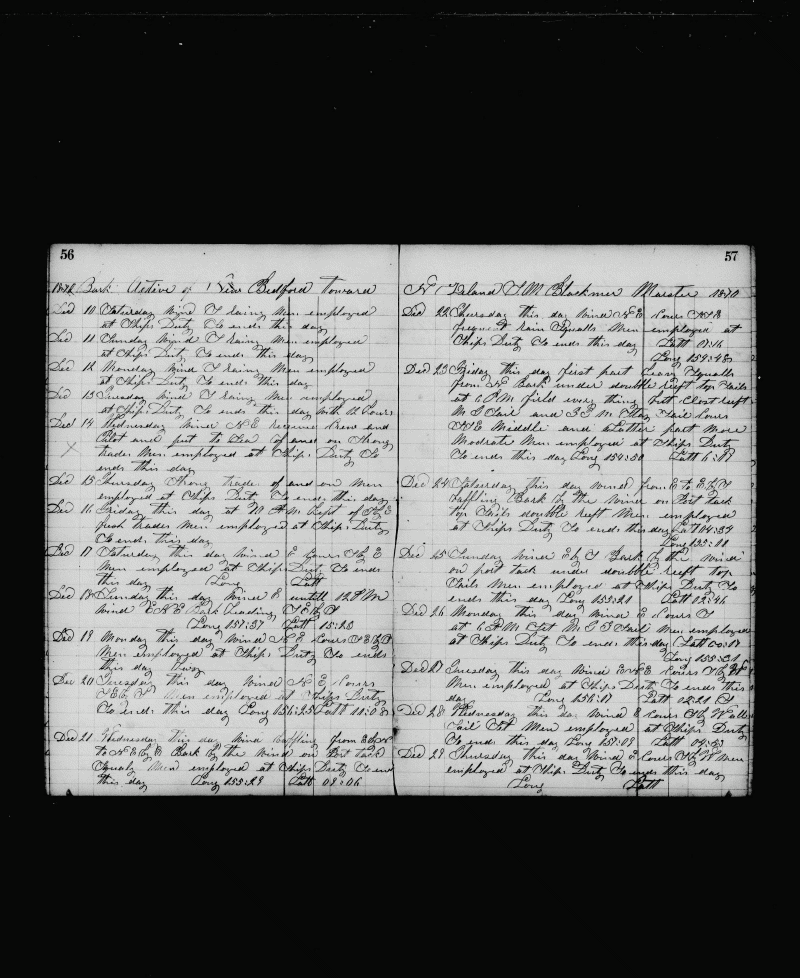 56
1870 Bark Active of New Bedford Toward
Dec 10 Saturday wind & raing Men employed
at Ships Duty So ends this day
Dec 11 Sunday wind & raing Men employed
at Ships Duty So ends this day
Dec 12 Monday wind & raing Men employed
at Ships Duty So ends this day
Dec 13 Tuesday wind & raing Men employed
at Ships Duty So ends this day with 12 hours
Dec 14 Wednesday wind N E receive Crew and
Pilot and put to Sea of and on Strong
trades Men employed at Ships Duty So
ends this day
Dec 15 Thursday Strong trade of and on Men
employed at Ships Duty So ends this day
Dec 16 Friday this day at 10 A M Kept of
fresh trades Men employed at Ships Duty
So ends this day
Dec 17 Saturday this day wind E Cours S by E
Men employed at Ships Duty So ends
this day Long Latt
Dec 18 Sunday this day Wind E untill 12 P M
wind E N E Bark heading
Long 157:57 Latt 15:25
Dec 19 Monday this day Wind N E Cours
Men employed at Ships Duty So ends
this day
Dec 20 Tuesday this day Wind N E Cours
Men employed at Ships Duty
So ends this day Long 156:25 Latt 11:08
Dec 21 Wednesday this day Wind baffling from
to N E by E Bark by the Wind on Port tack
Squaly Men employed at Ships Duty So ends
this day Long 155:29 Latt 09:06
57
Island S M Blackmer Master 1870
Dec 22 Thursday this day Wind N E Cours
frequent rain Squalls Men employed at
Ships Duty So ends this day Latt
Long 154:48
Dec 23 Friday this day first part heavy Squalls
from N Bark under double reeft top Sails
at 6 P M furld every thing but Close reeft
M T Sail and Stay Sail Cours
Middle and Latter part More
Moderate Men employed at Ships Duty
So ends this day Long 154:30 Latt
Dec 24 Saturday this day Wind from E to E by S
baffling Bark by the Wind on Port tack
top Sails double reeft Men employed
at Ships Duty So ends this day Latt 04:34
Long
Dec 25 Sunday Wind E by S Bark by the Wind
on port tack under double reeft top
Sails Men employed at Ships Duty So
ends this day Long 153:21 Latt 02:46
Dec 26 Monday this day Wind E Cours S
at 6 A M Set M G Sail Men employed
at Ships Duty So ends this day Latt
Long 155:31
Dec 27 Tuesday this day Wind E N E Cours S by W
Men employed at Ships Duty So ends this
day Long 156:17 Latt 02:21 S
Dec 28 Wednesday this day Wind E Cours S by W all
Sail Set Men employed at Ships Duty
So ends this day Long 157:08 Latt 04:43
Dec 29 Thursday this day Wind E Cours S by W Men
employed at Ships Duty So ends this day
Long Latt